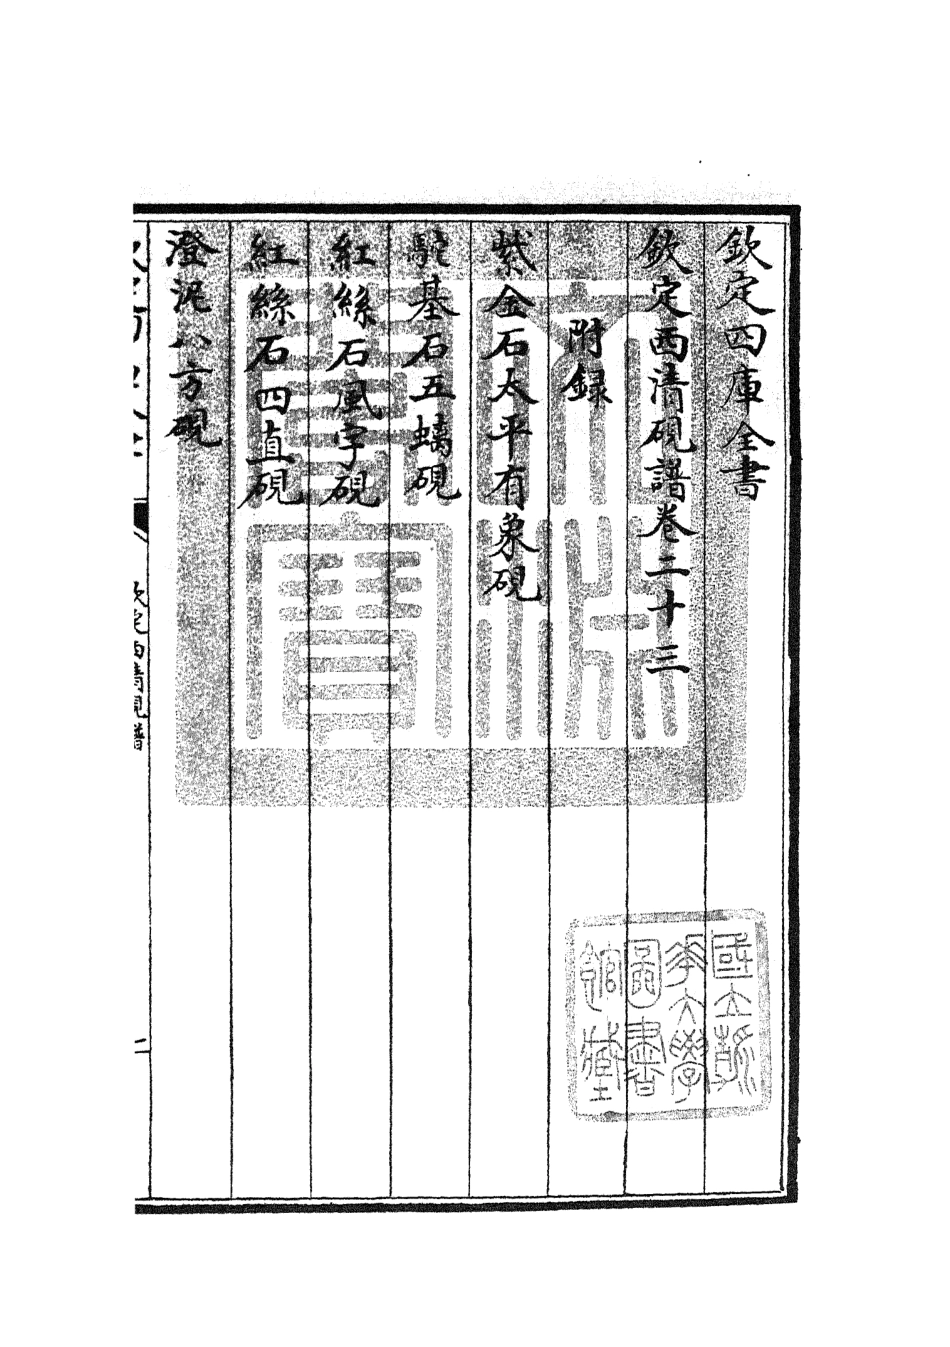 欽定四庫全書
欽定西清硯譜卷二十三
附録
紫金石太平有象硯
駝基石五螭硯
紅絲石風字硯
紅絲石四直硯
澄泥八方硯
欽定四庫全書
欽定西清硯譜
文淵閣寶
國立浙江大學圖書館藏